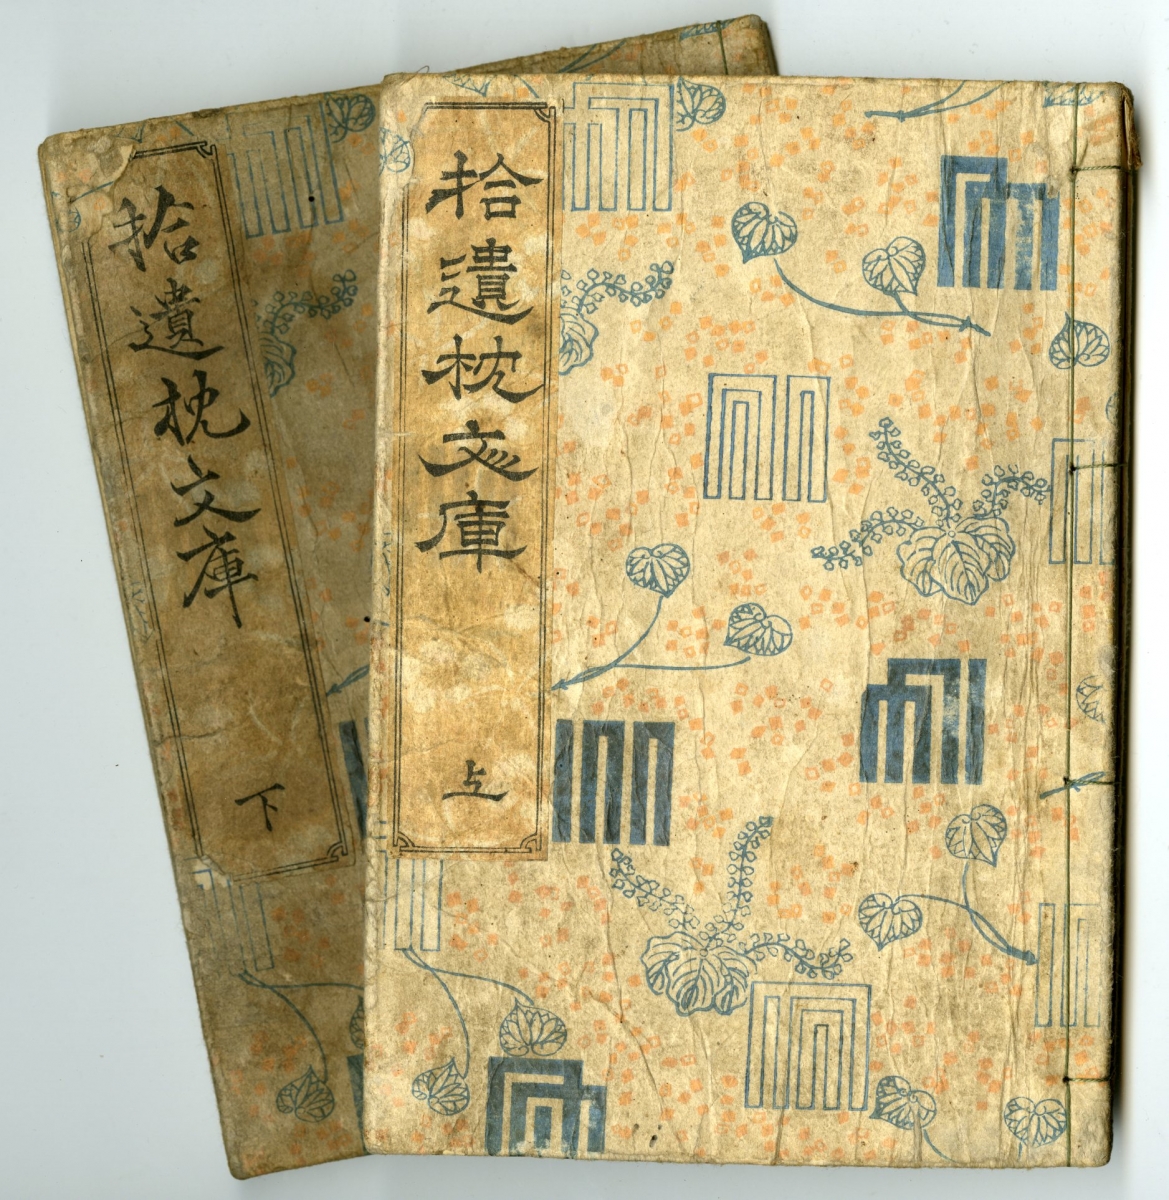 拾遺枕文庫 上
拾遺枕文庫 下